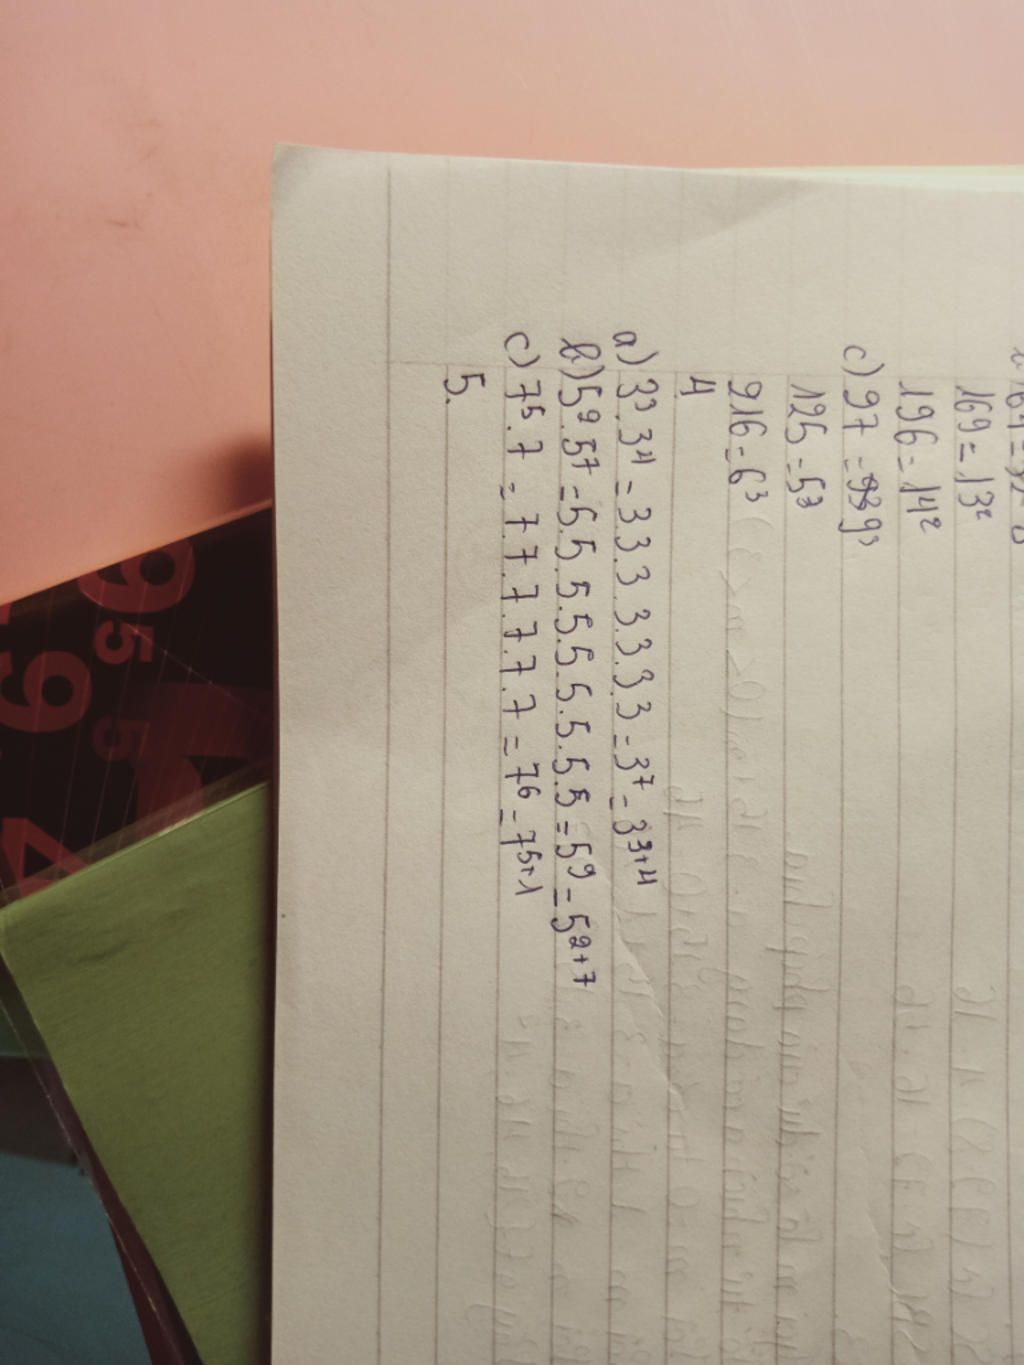 169 = 13²
196 = 14²
c) 27 = 3³
125 = 5³
216 = 6³
4
a) 3³.3⁴ = 3.3.3.3.3.3.3 = 3⁷ = 3³⁺⁴
b) 5².5⁷ = 5.5.5.5.5.5.5.5.5 = 5⁹ = 5²⁺⁷
c) 7⁵.7 = 7.7.7.7.7.7 = 7⁶ = 7⁵⁺¹
5.